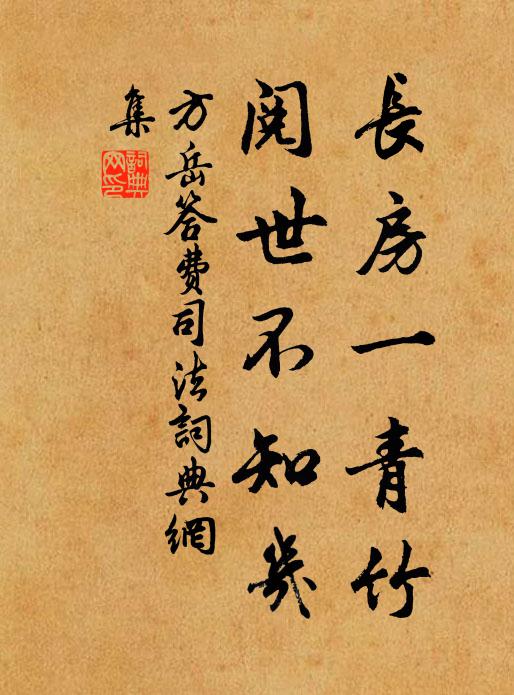 長房一青竹
閱世不知幾
方岳答費司法詞典網
集
詞典网印